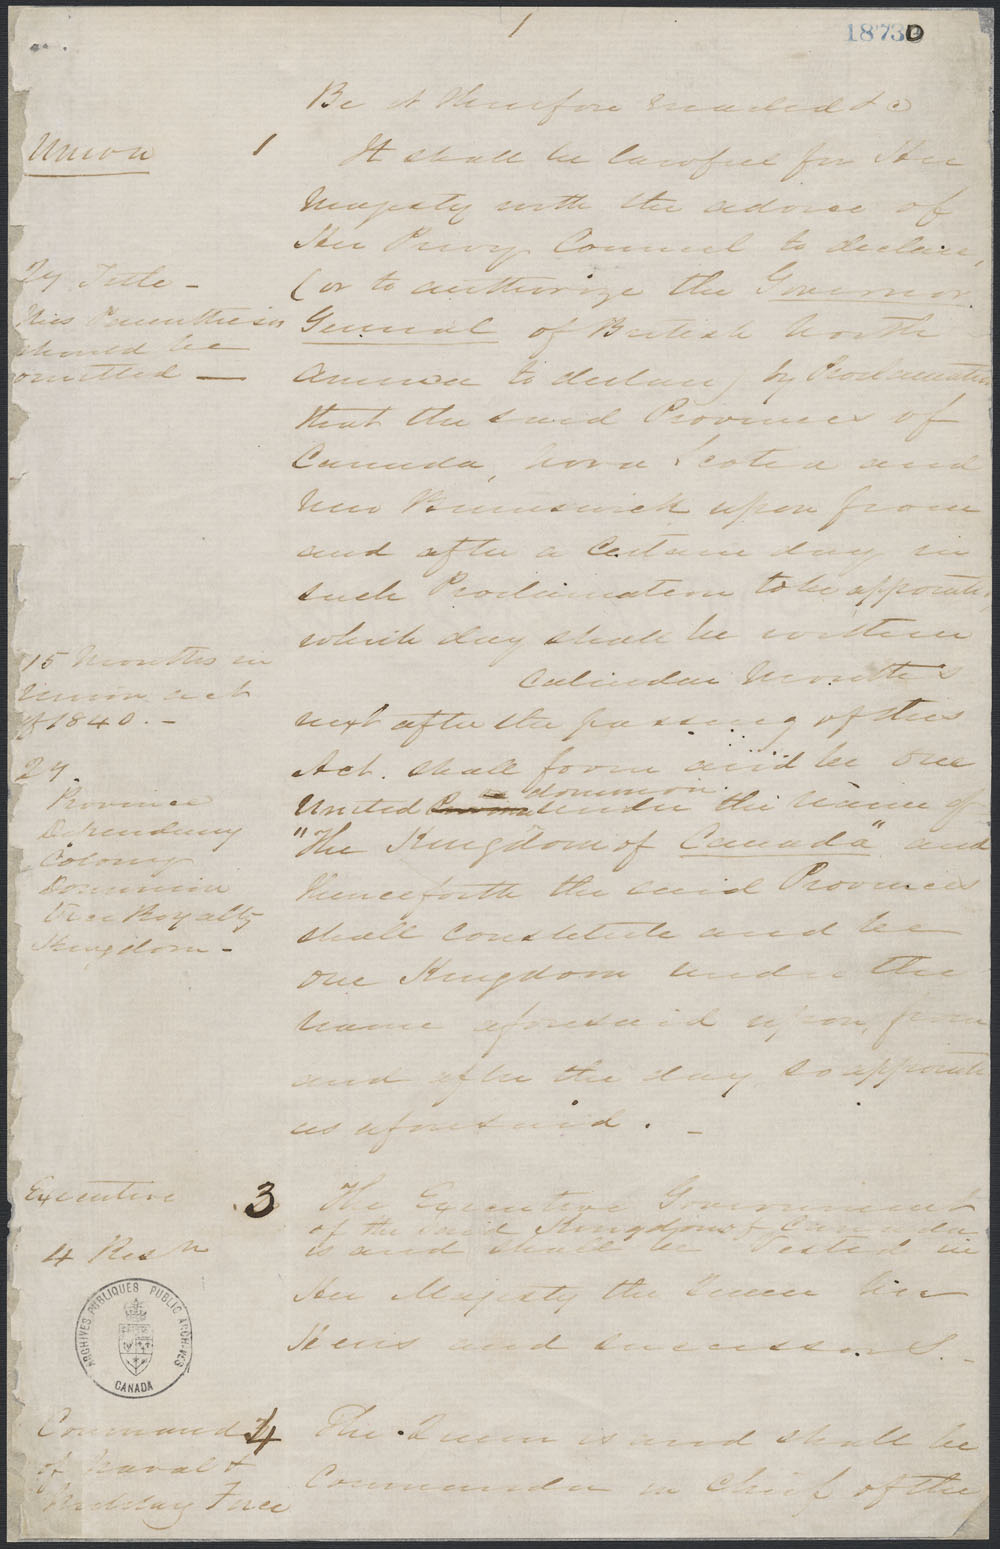 1
1873D
Be it therefore enacted &c
Union 1 It shall be lawful for Her
Majesty with the advice of
Her Privy Council to declare,
27 Title -
(or to authorize the Governor
This Parenthesis
General of British North
should be
omitted —
America to declare) by Proclamation
that the said Provinces of
Canada, Nova Scotia and
New Brunswick upon from
and after a certain day in
such Proclamation to be appointed
which day shall be within
15 Months in
Union act
of 1840. -
Calendar Months
next after the passing of this
Act. shall form and be one
dominion
United under the name of
"The Kingdom of Canada" and
27
Province
Dependency
Colony
Dominion
Vice Royalty
Kingdom -
henceforth the said Provinces
shall constitute and be
one Kingdom under the
name aforesaid upon, from
and after the day so appointed
as aforesaid. -
Executive 3 The Executive Government
of the said Kingdom of Canada
4 Resn
is and shall be vested in
Her Majesty the Queen her
Heirs and successors. -
ARCHIVES PUBLIQUES PUBLIC ARCHIVES
CANADA
Command 4 The Queen is and shall be
of Naval &
Commander in Chief of the
Military Force